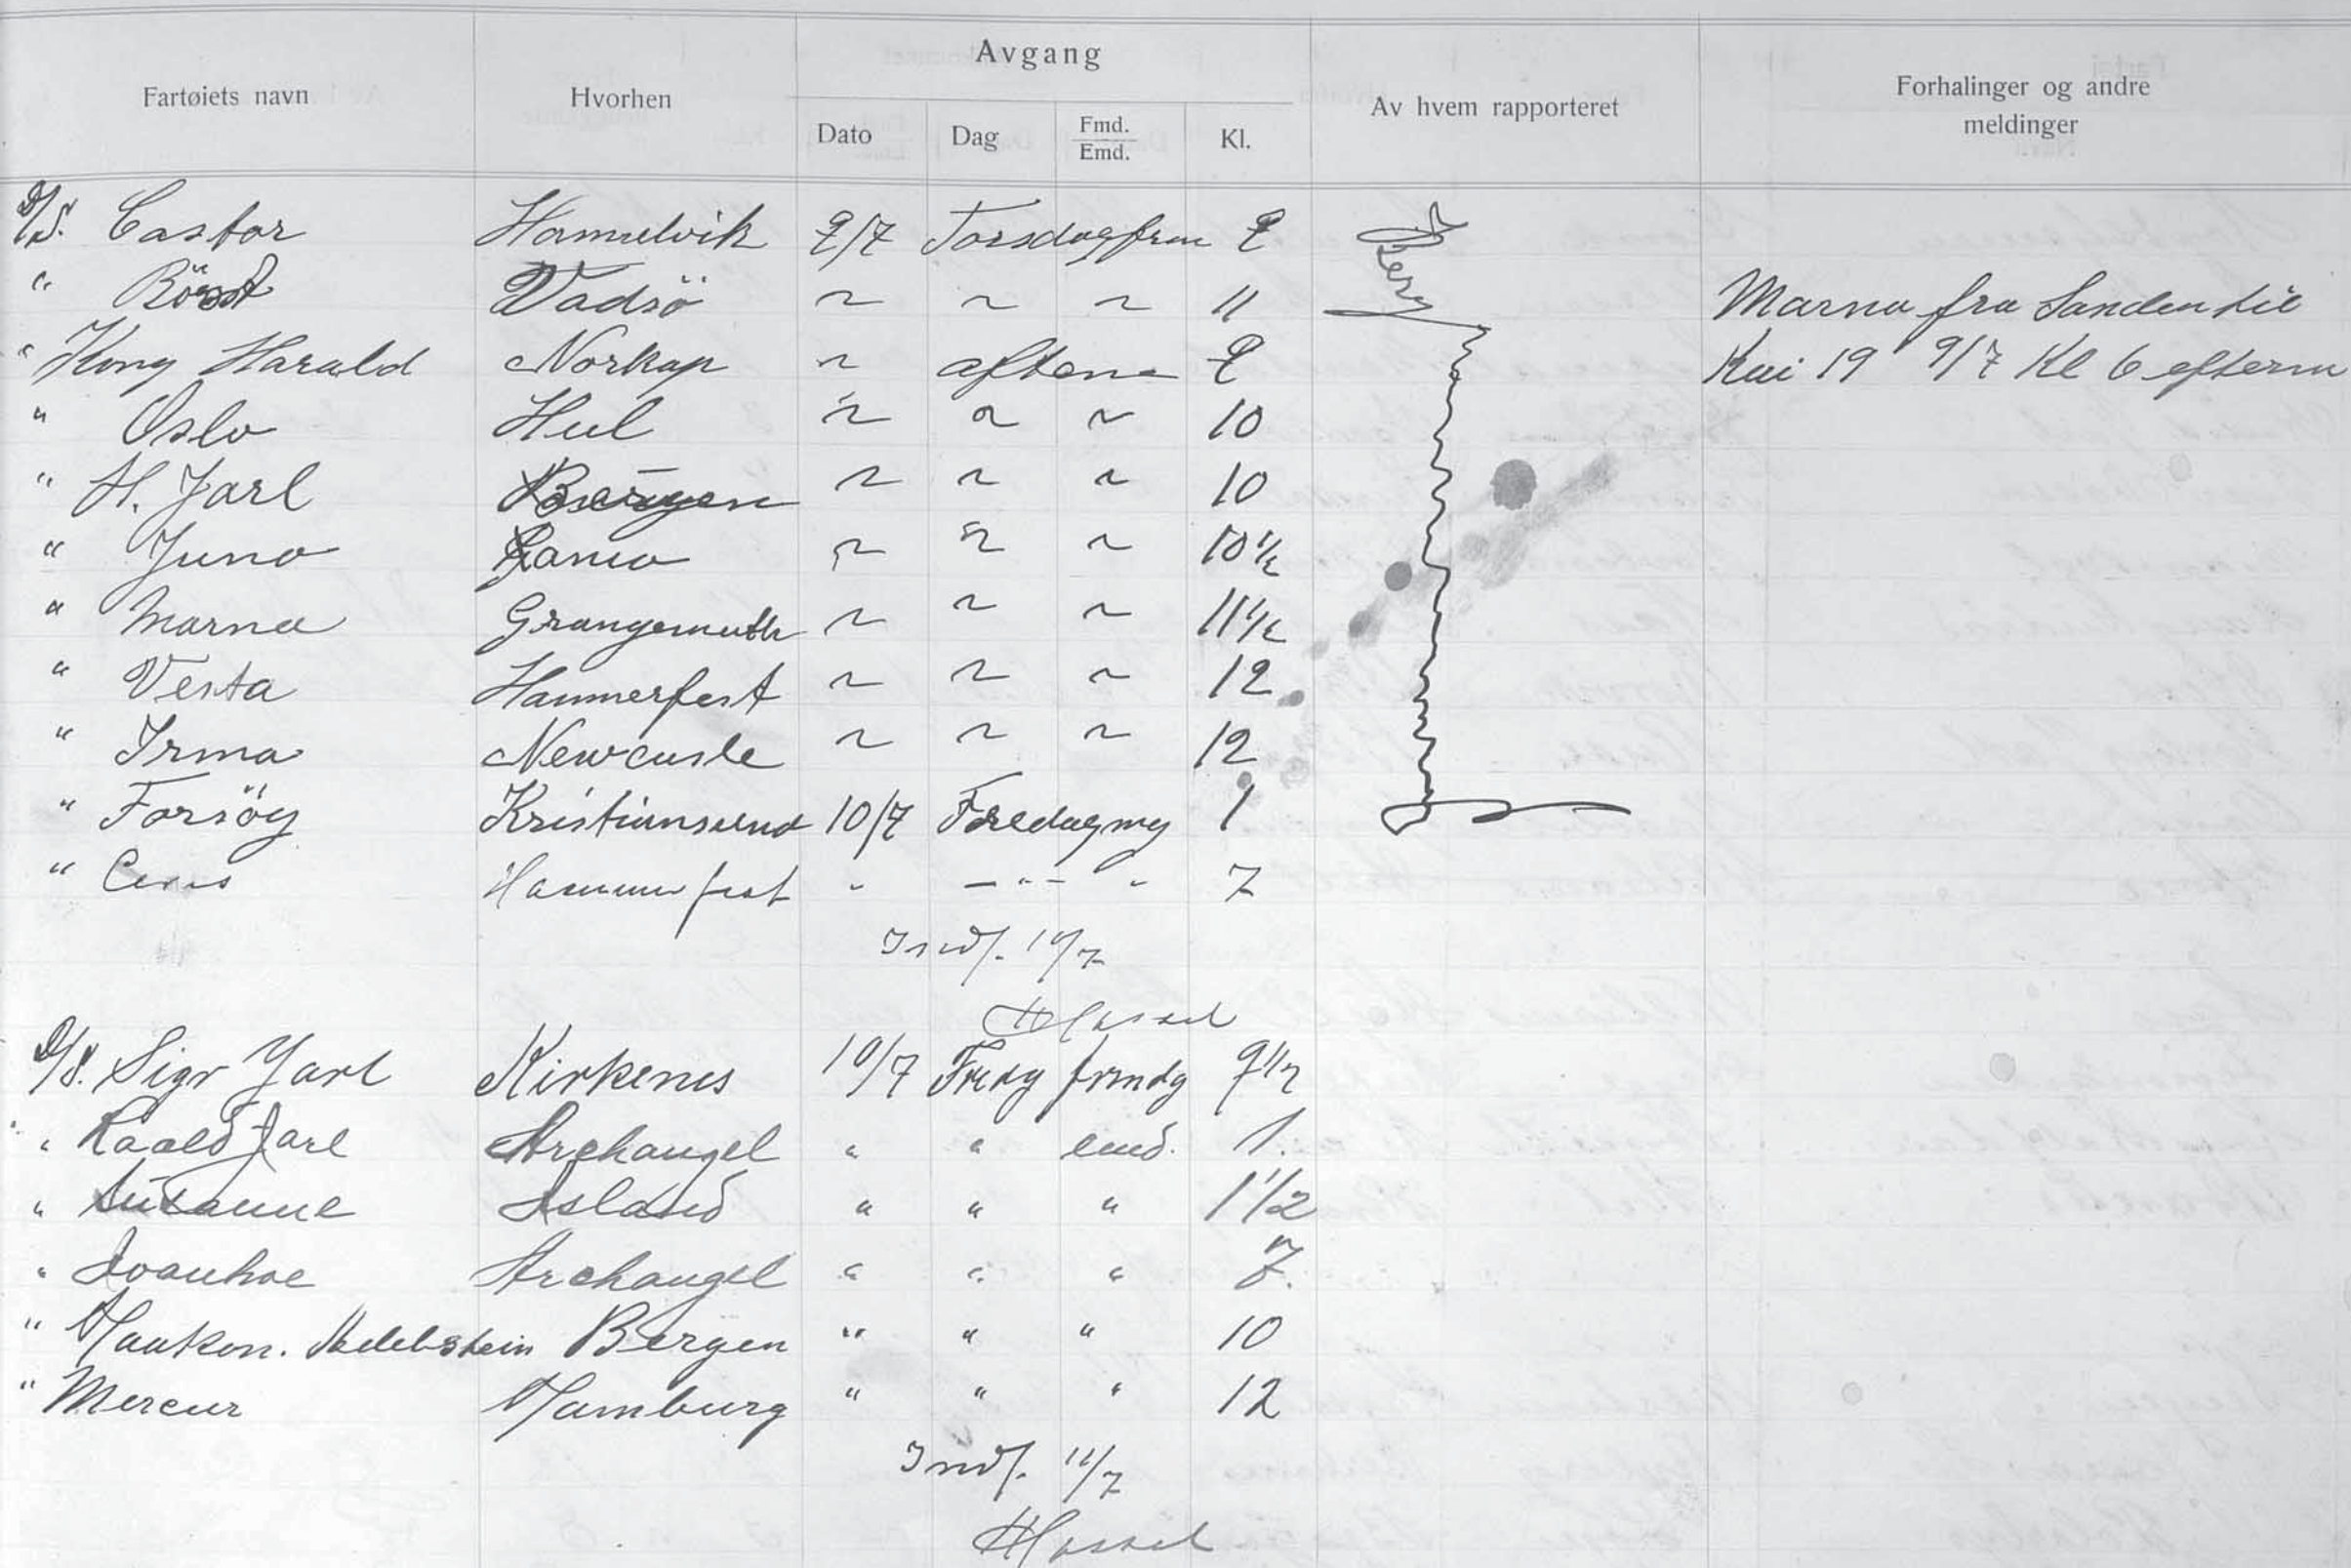 Avgang
Fartøiets navn Hvorhen Dato Dag Fmd. Emd. Kl. Av hvem rapporteret Forhalinger og andre meldinger
D/S. Castor 9/7 Torsdag frm 9
" Vadsö ~ ~ ~ 11 Marna fra Sanden til
" Kong Harald Norkap ~ aften 9 Kai 19 9/7 Kl 6 efterm
" Oslo Hul ~ ~ ~ 10
" H. Jarl Bergen ~ ~ ~ 10
" Juno ~ ~ ~ 10 1/2
" Marna Grangemuth ~ ~ ~ 11 1/2
" Vesta Hammerfest ~ ~ ~ 12
" Irma Newcasle ~ ~ ~ 12
" Forsög Kristiansund 10/7 Fredag mg 1
" Ceres Hammerfest " — " — " 7
Indf. 10/7
D/S. Sigr Jarl Kirkenes 10/7 frmdg 9 1/2
" Jarl Archangel " " emd. 1.
" Susanne Island " " " 1 1/2
" Ivanhoe Archangel " " " 7.
" Haakon. Adelstein Bergen " " " 10
" Mercur Hamburg " " " 12
Indf. 11/7